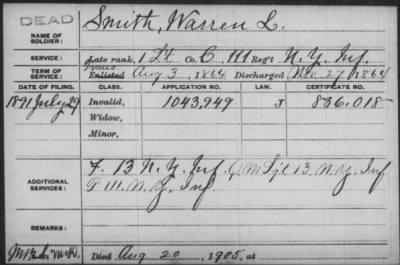 DEAD
NAME OF SOLDIER: Smith, Warren L.
SERVICE: Late rank, 1 Lt Co. C, 111 Reg't N.Y. Inf.
TERM OF SERVICE: Enlisted Aug 3, 1864 Discharged Nov. 27, 1864
DATE OF FILING. CLASS. APPLICATION NO. LAW. CERTIFICATE NO.
1891 July 29 Invalid, 1043,949 J 836.018
Widow,
Minor,
ADDITIONAL SERVICES: F. 13 N.Y. Inf. Q.M. Sgt 13. N.Y. Inf
F 111. N.Y. Inf.
REMARKS:
Died Aug 20, 1905, at